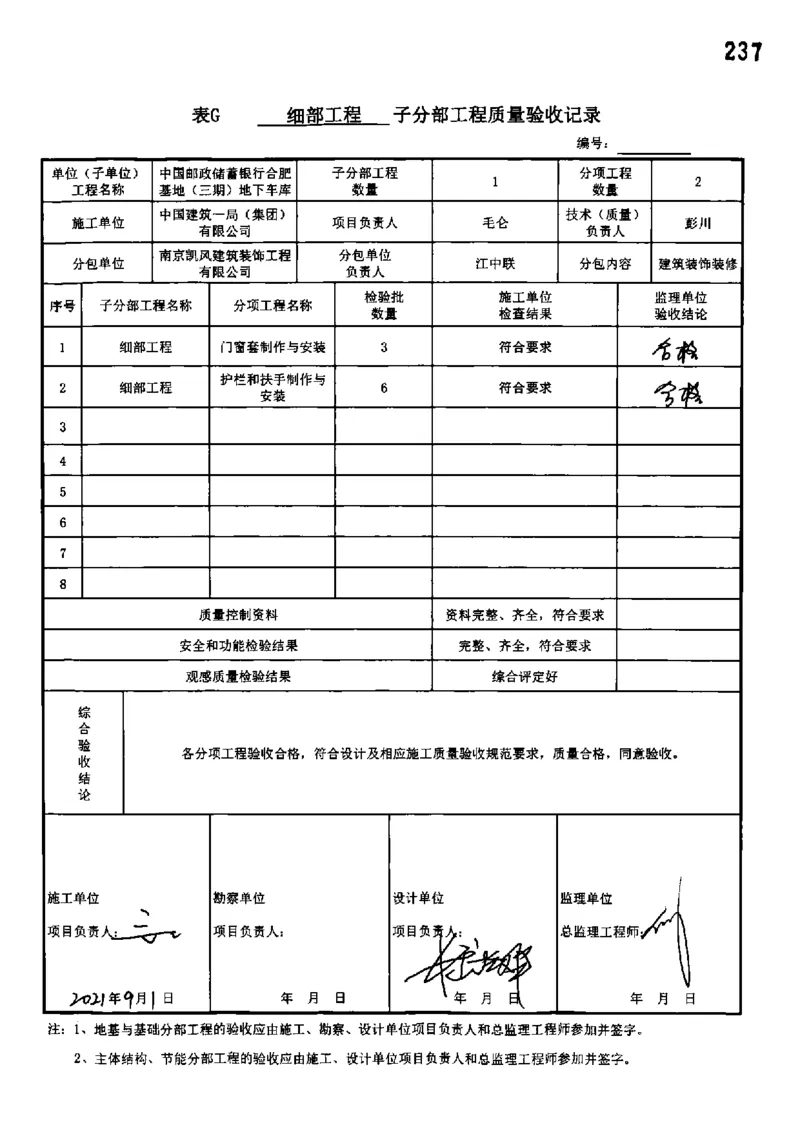 237
表G 细部工程 子分部工程质量验收记录
编号：
单位（子单位）工程名称 中国邮政储蓄银行合肥基地（三期）地下车库 子分部工程数量 1 分项工程数量 2
施工单位 中国建筑一局（集团）有限公司 项目负责人 毛仑 技术（质量）负责人 彭川
分包单位 南京凯风建筑装饰工程有限公司 分包单位负责人 江中联 分包内容 建筑装饰装修
序号 子分部工程名称 分项工程名称 检验批数量 施工单位检查结果 监理单位验收结论
1 细部工程 门窗套制作与安装 3 符合要求 合格
2 细部工程 护栏和扶手制作与安装 6 符合要求 合格
3
4
5
6
7
8
质量控制资料 资料完整、齐全，符合要求
安全和功能检验结果 完整、齐全，符合要求
观感质量检验结果 综合评定好
综合验收结论 各分项工程验收合格，符合设计及相应施工质量验收规范要求，质量合格，同意验收。
施工单位 勘察单位 设计单位 监理单位
项目负责人： 项目负责人： 项目负责人： 总监理工程师：
2021年9月1日 年 月 日 年 月 日 年 月 日
注：1、地基与基础分部工程的验收应由施工、勘察、设计单位项目负责人和总监理工程师参加并签字。
2、主体结构、节能分部工程的验收应由施工、设计单位项目负责人和总监理工程师参加并签字。